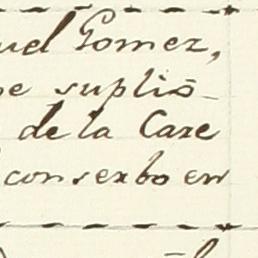 uel Gomez,
se suplió
de la Care
conserbo en